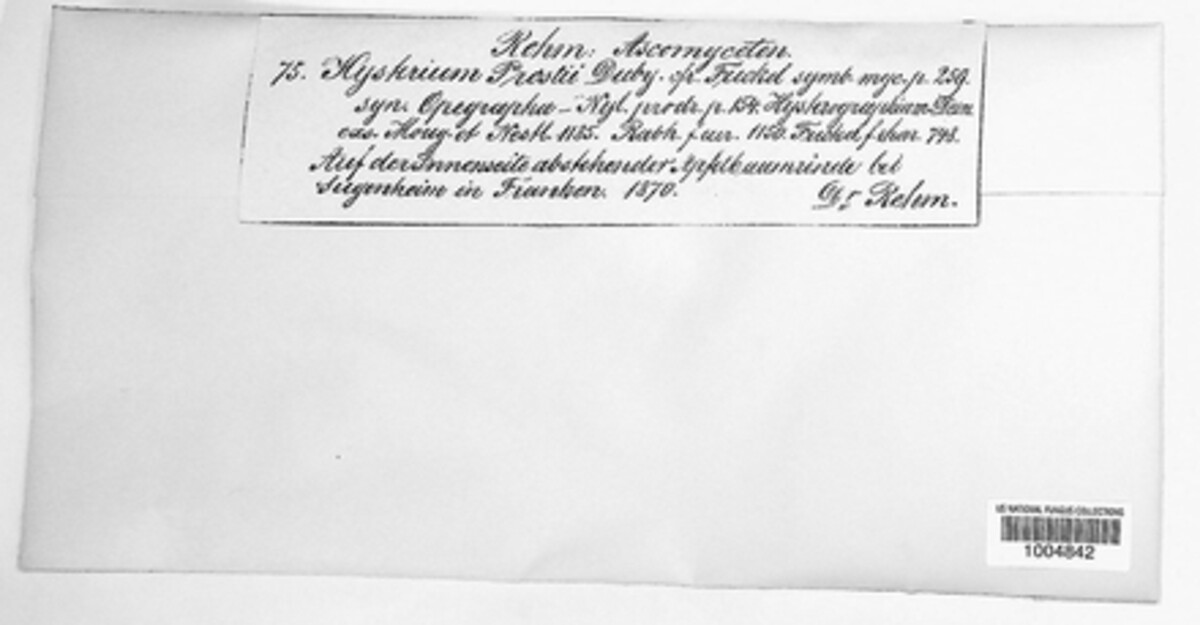 Rehm: Ascomyceten.
75. Hysterium Prostii Duby. cfr. Fuckel symb. myc. p. 259.
syn. Opegrapha – Nyl. prodr. p. 154. Hysterographium
exs. Moug. et Nestl. 1185. Rabh. f. eur. 1150. Fuckel f. rhen. 748.
Auf der Innenseite abstehender Apfelbaumrinde bei
Sugenheim in Franken. 1870. Dr Rehm.
US NATIONAL FUNGUS COLLECTIONS
1004842